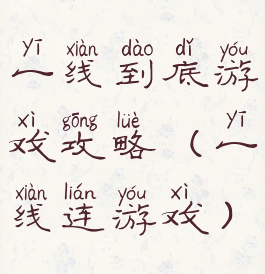 yī xiàn dào dǐ yóu
一线到底游
xì gōng lüè yī
戏攻略（一
xiàn lián yóu xì
线连游戏）